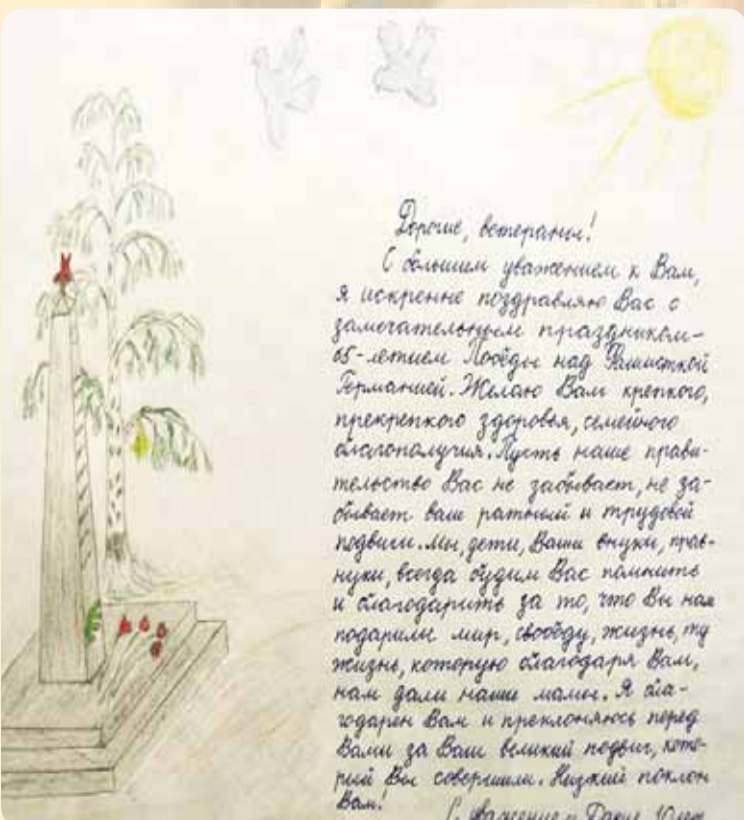 Дорогие, ветераны!
С большим уважением к Вам,
я искренне поздравляю Вас с
замечательным праздником-
65-летием Победы над Фашисткой
Германией. Желаю Вам крепкого,
прекрепкого здоровья, семейного
благополучия. Пусть наше прави-
тельство Вас не забывает, не за-
бывает ваш ратный и трудовой
подвиги. Мы, дети, Ваши внуки, прав-
нуки, всегда будим Вас помнить
и благодарить за то, что Вы нам
подарили мир, свободу, жизнь, ту
жизнь, которую благодаря Вам,
нам дали наши мамы. Я бла-
годарен Вам и преклоняюсь перед
Вами за Ваш великий подвиг, кото-
рый Вы совершили. Низкий поклон
Вам!
С уважением